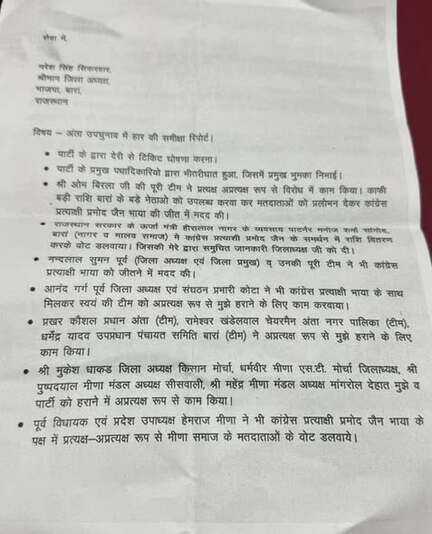 सेवा में,
नरेश सिंह सिकरवार,
श्रीमान जिला अध्यक्ष,
भाजपा, बारां,
राजस्थान
विषय – अंता उपचुनाव में हार की समीक्षा रिपोर्ट।
• पार्टी के द्वारा देरी से टिकिट घोषणा करना।
• पार्टी के प्रमुख पदाधिकारियो द्वारा भीतरीघात हुआ, जिसमें प्रमुख भुमका निभाई।
• श्री ओम बिरला जी की पूरी टीम ने प्रत्यक्ष अप्रत्यक्ष रूप से विरोध में काम किया। काफी
बड़ी राशि बारां के बड़े नेताओ को उपलब्ध करवा कर मतदाताओं को प्रलोभन देकर कांग्रेस
प्रत्याक्षी प्रमोद जैन भाया की जीत में मदद की।
• राजस्थान सरकार के ऊर्जा मंत्री हीरालाल नागर के व्यवसाय पार्टनर मनोज शर्मा सांगोद,
बारां (नागर व मालव समाज) ने कांग्रेस प्रत्याक्षी प्रमोद जैन के समर्थन में राशि वितरण
करके वोट डलवाया। जिसकी मेरे द्वारा समुचित जानकारी जिलाध्यक्ष जी को दी।
• नन्दलाल सुमन पूर्व (जिला अध्यक्ष एवं जिला प्रमुख) व उनकी पूरी टीम ने भी कांग्रेस
प्रत्याक्षी भाया को जीतने में मदद की।
• आनंद गर्ग पूर्व जिला अध्यक्ष एवं संघठन प्रभारी कोटा ने भी कांग्रेस प्रत्याक्षी भाया के साथ
मिलकर स्वयं की टीम को अप्रत्यक्ष रूप से मुझे हराने के लिए काम करवाया।
• प्रखर कौशल प्रधान अंता (टीम), रामेश्वर खंडेलवाल चेयरमैन अंता नगर पालिका (टीम),
धर्मेंद्र यादव उपप्रधान पंचायत समिति बारां (टीम) ने अप्रत्यक्ष रूप से मुझे हराने के लिए
काम किया।
• श्री मुकेश धाकड जिला अध्यक्ष किसान मोर्चा, धर्मवीर मीणा एस.टी. मोर्चा जिलाध्यक्ष, श्री
पुष्पदयाल मीणा मंडल अध्यक्ष सीसवाली, श्री महेंद्र मीणा मंडल अध्यक्ष मांगरोल देहात मुझे व
पार्टी को हराने में अप्रत्यक्ष रूप से काम किया।
• पूर्व विधायक एवं प्रदेश उपाध्यक्ष हेमराज मीणा ने भी कांग्रेस प्रत्याक्षी प्रमोद जैन भाया के
पक्ष में प्रत्यक्ष–अप्रत्यक्ष रूप से मीणा समाज के मतदाताओं के वोट डलवाये।